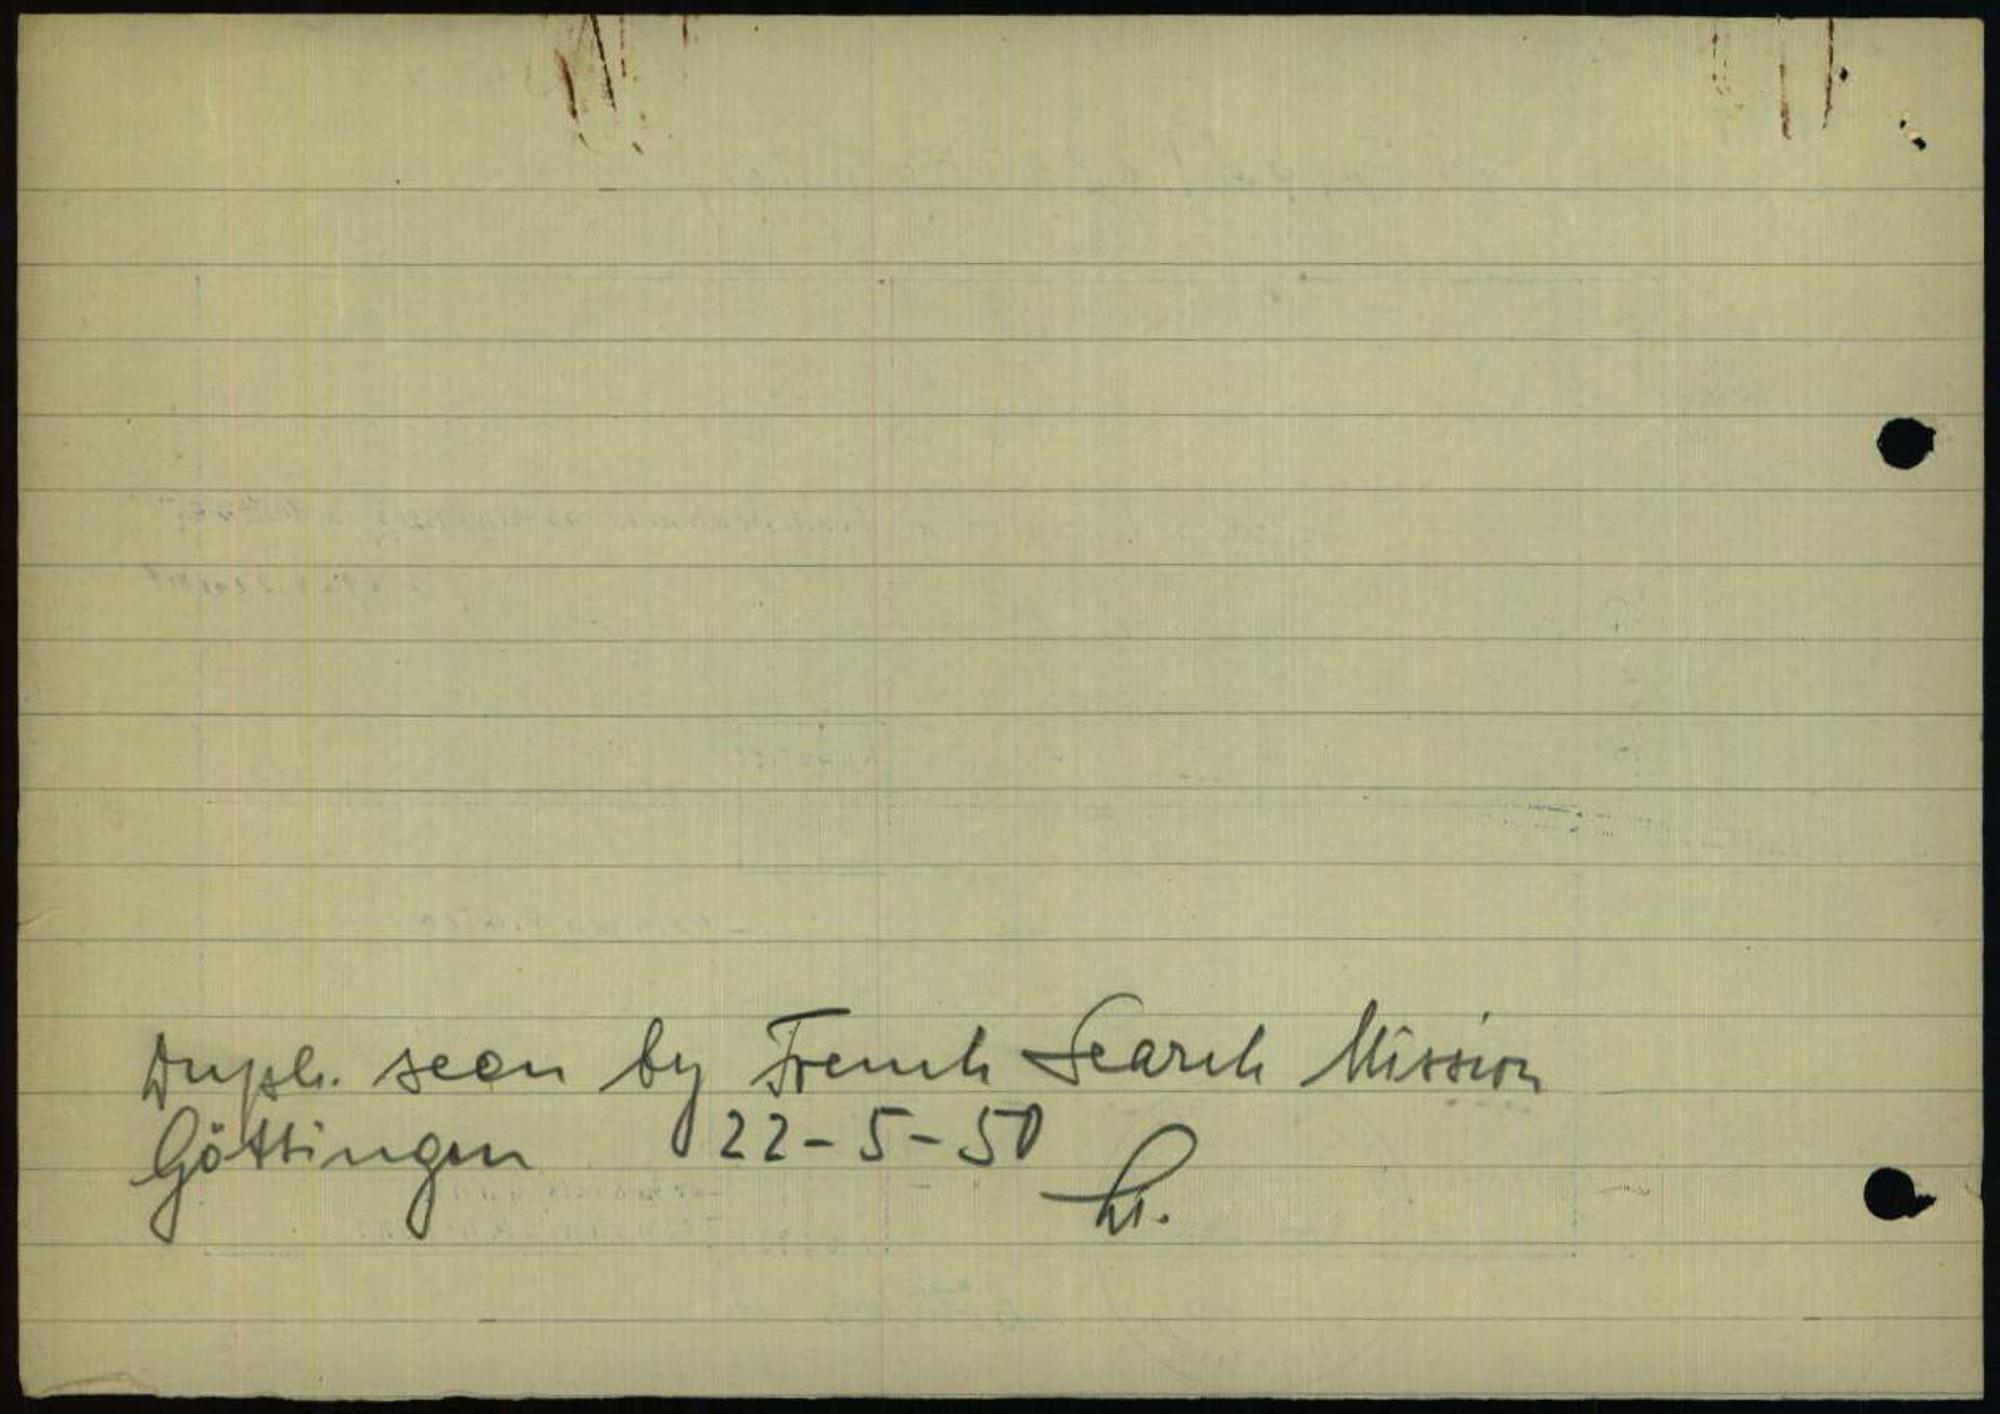 Dupl. seen by French Search Mission
Göttingen 22-5-50